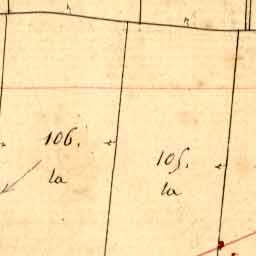 106.
la
105.
la